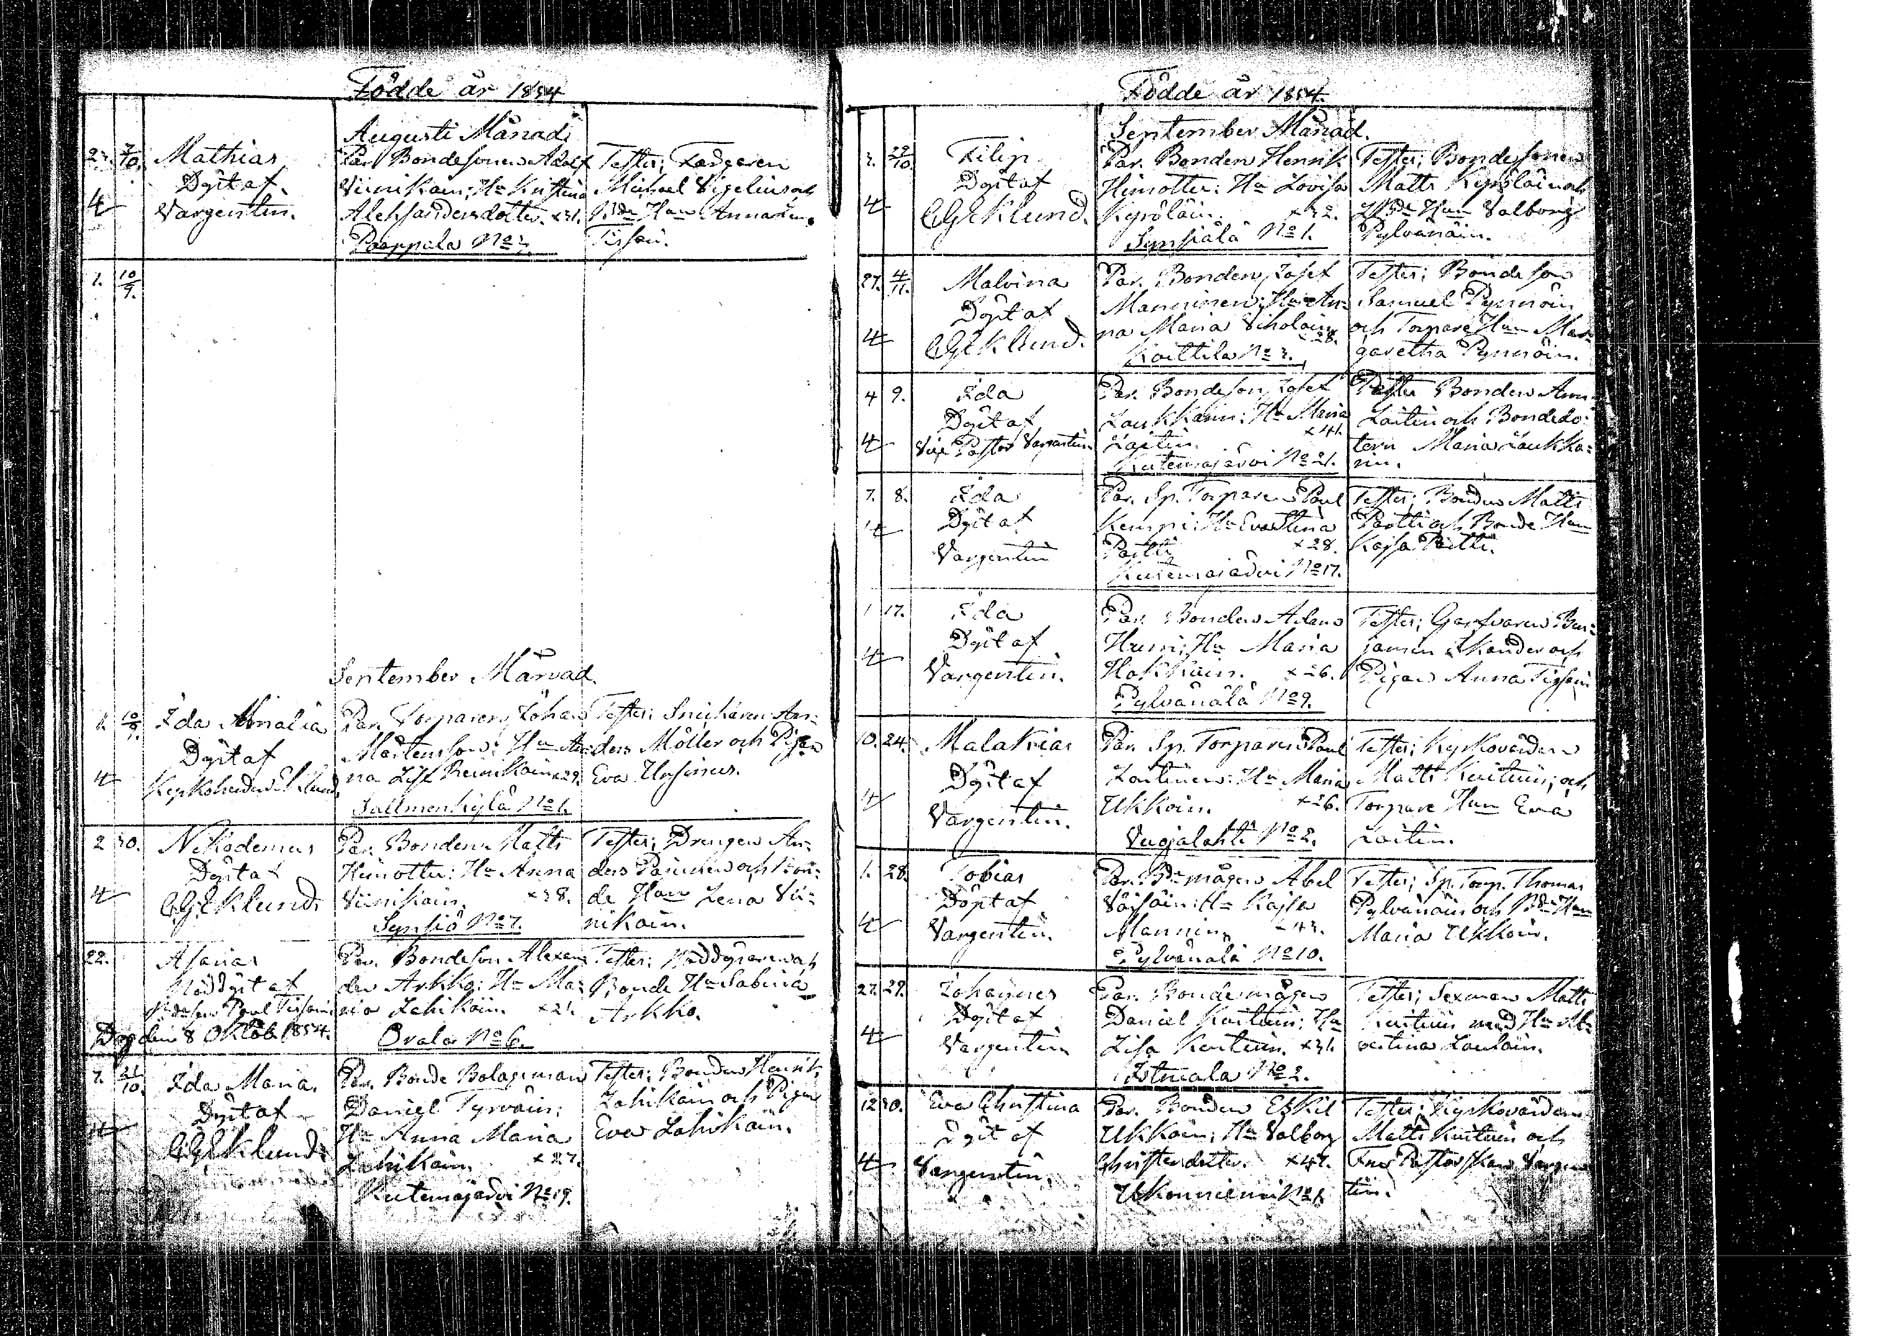 Födde år 1854
Augusti Månad
23. 7/10. Mathias
Döpt af
Vargentin.
4
Par. Bondesonen Adolf
Viinikain; Hu Kristina
Aleksandersdotter. x31.
Paappala No 2.
Test; Färgaren
Michael Sigelius och
Bde Hun Anna
Tissari.
1. 10/9.
September Månad.
2. 10/9. Ida Amalia
Döpt af
Kyrkoherden
4
Par. Torparen Johan
Mårtensson; Hu An-
na Lisa Reinikain x29.
Sallmenkylä No 1.
Test; Snickaren An-
ders Möller och Pigan
Eva Ursinus.
2 30. Nikodemus
Döpt af
CGEklund
4
Par. Bonden Matts
Himotter; Hu Anna
Viinikain. x38.
Synsiö No 7.
Test; Drengen An-
ders Paininen och Bon-
de Hun Lena Vii-
nikain.
22. Asarias
Nöddöpt af
Bdeson Paul Tissari
Dog den 8 Oktob. 1854.
Par. Bondeson Alexan
der Arkko; Hu Ma-
ria Lahikain x21.
Orala No 6.
Test; Nöddöparen och
Bonde Hu Sabina
Arkko.
7. 21/10. Ida Maria
Döpt af
CGEklund
4
Par. Bonde Bolagsman
Daniel Tyrväin;
Hu Anna Maria
Lahikain x27.
Kutemajärvi No 19.
Test; Bonden Henrik
Lahikain och Pigan
Eva Lahikain.
Födde år 1854.
September Månad.
3. 22/10. Filip
Döpt af
CGEklund.
4
Par. Bonden Henrik
Himotter; Hu Lovisa
Kyröläin. x32.
Synsiälä No 1.
Test; Bondesonen
Matts Kyröläin och
Bde Hun Valborg
Pylvänäin.
27. 4/11. Malvina
Döpt af
CGEklund.
4
Par. Bonden Josef
Manninen; Hu An-
na Maria Siholain x28.
Kaittila No 3.
Test; Bondeson
Samuel Pynnöin
och Torpare Hun Mar-
garetha Pynnöin.
4 9. Ida
Döpt af
Vice Pastor Vargentin
4
Par. Bondeson Josef
Laukkanin; Hu Maria
Laitin. x41.
Kutemajärvi No 21.
Test Bonden
Laitin och Bondedo-
tern Maria Laukka-
nin.
7. 8. Ida
Döpt af
Vargentin
4
Par. Sp. Torparen Paul
Kemppi; Hu Eva Stina
Partti x28.
Kutemajärvi No 17.
Test; Bonden Matts
Partti och Bonde Hun
Kajsa Partti.
1 17. Ida
Döpt af
Vargentin.
4
Par. Bonden Adam
Hu Maria
Hokkain. x26.
Pylvänälä No 9.
Test; Garfvaren Ben-
jamin Skander och
Pigan Anna Tissari
10. 24. Malakias
Döpt af
Vargentin.
4
Par. Sp. Torparen Paul
Laitinen; Hu Maria
Ukkoin. x26.
Vuojalahti No 2.
Test; Kyrkovärden
Matts Kuituin; och
Torpare Hun Eva
Laitin.
1. 28. Tobias
Döpt af
Vargentin.
4
Par. Bdemågen Abel
Väisäin; Hu Kajsa
Mannin x43.
Pylvänälä No 10.
Test; Sp. Torp. Thomas
Pylvänäin och Bde Hun
Maria Ukkoin.
27. 29. Johannes
Döpt af
Vargentin
4
Par. Bondemågen
Daniel Kuituin; Hu
Lisa Kuituin. x31.
Istuala No 2.
Test; Sexman Matts
Kuituin med Hu Al-
bertina Laulain.
12 30. Eva Christina
Döpt af
Vargentin.
4
Par. Bonden Eskil
Ukkoin; Hu Valborg
Christersdotter. x47.
Ukonniemi No 1.
Test; Kyrkovärden
Matts Kuituin och
Fru Pastorskan Vargen
tin.